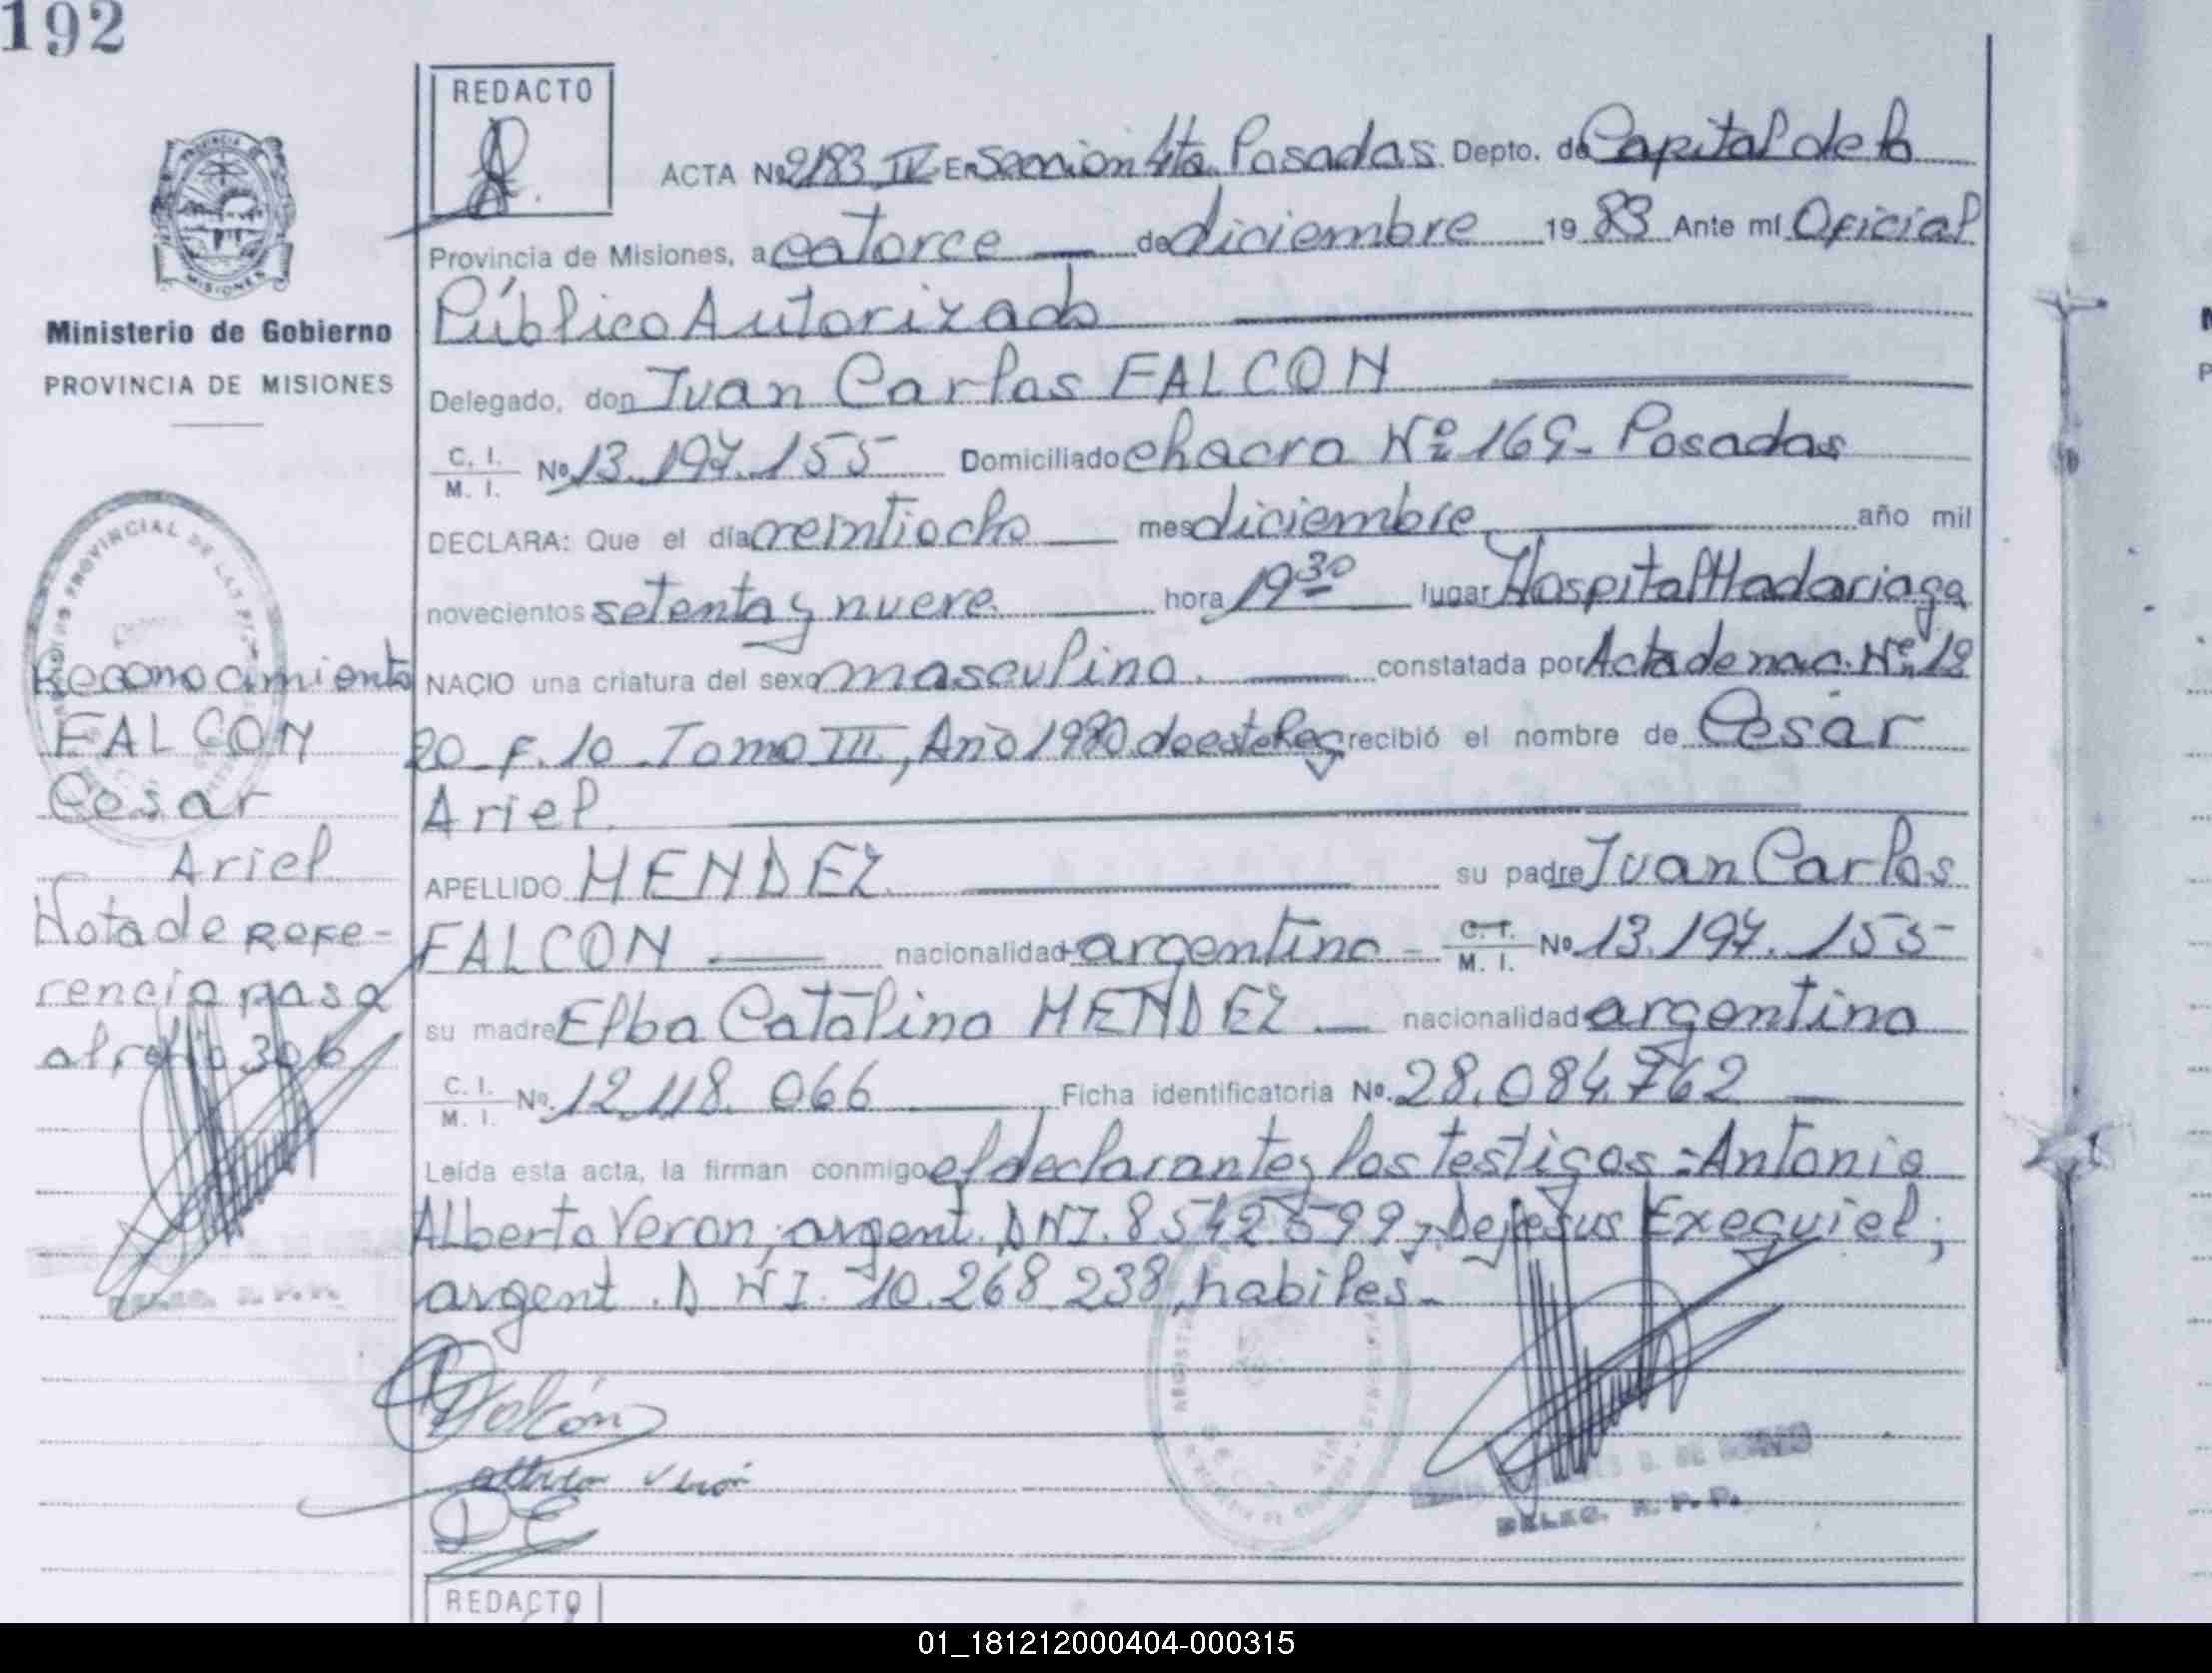 192
REDACTO
ACTA Nº 2183 IV En Sección 4ta. Posadas Depto. de Capital de la
Provincia de Misiones, a catorce de diciembre 1983 Ante mí Oficial
Público Autorizado
Delegado, don Juan Carlos FALCON
C. I. / M. I. Nº 13.197.155 Domiciliado chacra Nº 169- Posadas
DECLARA: Que el día veintiocho mes diciembre año mil
novecientos setenta y nueve. hora 19 30 lugar Hospital Madariaga
NACIO una criatura del sexo masculino. constatada por Acta de nac. Nº 12
20 F. 10 Tomo III, Año 1980 de este Reg recibió el nombre de Cesar
Ariel.
APELLIDO MENDEZ su padre Juan Carlos
FALCON nacionalidad argentino - C. I. / M. I. Nº 13.197.155
su madre Elba Catalina MENDEZ nacionalidad argentina
C. I. / M. I. Nº 12.118.066 Ficha identificatoria Nº 28.084.762
Leída esta acta, la firman conmigo el declarante y los testigos: Antonio
Alberto Veron, argent. DNI. 8542599 y Dejesus Exequiel,
argent. DNI. 10.268 238, habiles-
Falcón
DE
DELEG. R. P. P.
REDACTO
PROVINCIA DE
MISIONES
Ministerio de Gobierno
PROVINCIA DE MISIONES
PROVINCIAL DE LAS
Reconocimiento
FALCON
Cesar
Ariel
Nota de Refe-
rencia pasa
al folio 306
DELEG. R. P. P.
01_181212000404-000315